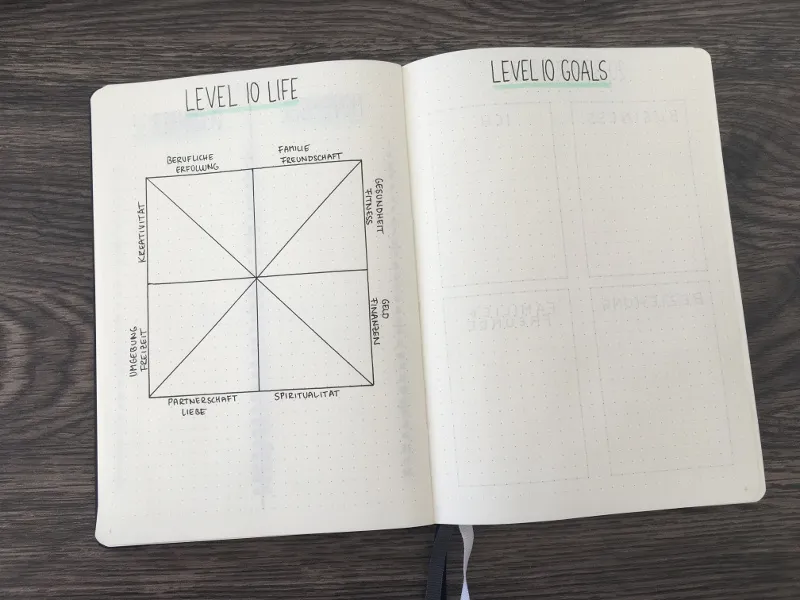 LEVEL 10 LIFE
BERUFLICHE
ERFÜLLUNG
FAMILIE
FREUNDSCHAFT
KREATIVITÄT
GESUNDHEIT
FITNESS
UMGEBUNG
FREIZEIT
GELD
FINANZEN
PARTNERSCHAFT
LIEBE
SPIRITUALITÄT
LEVEL 10 GOALS